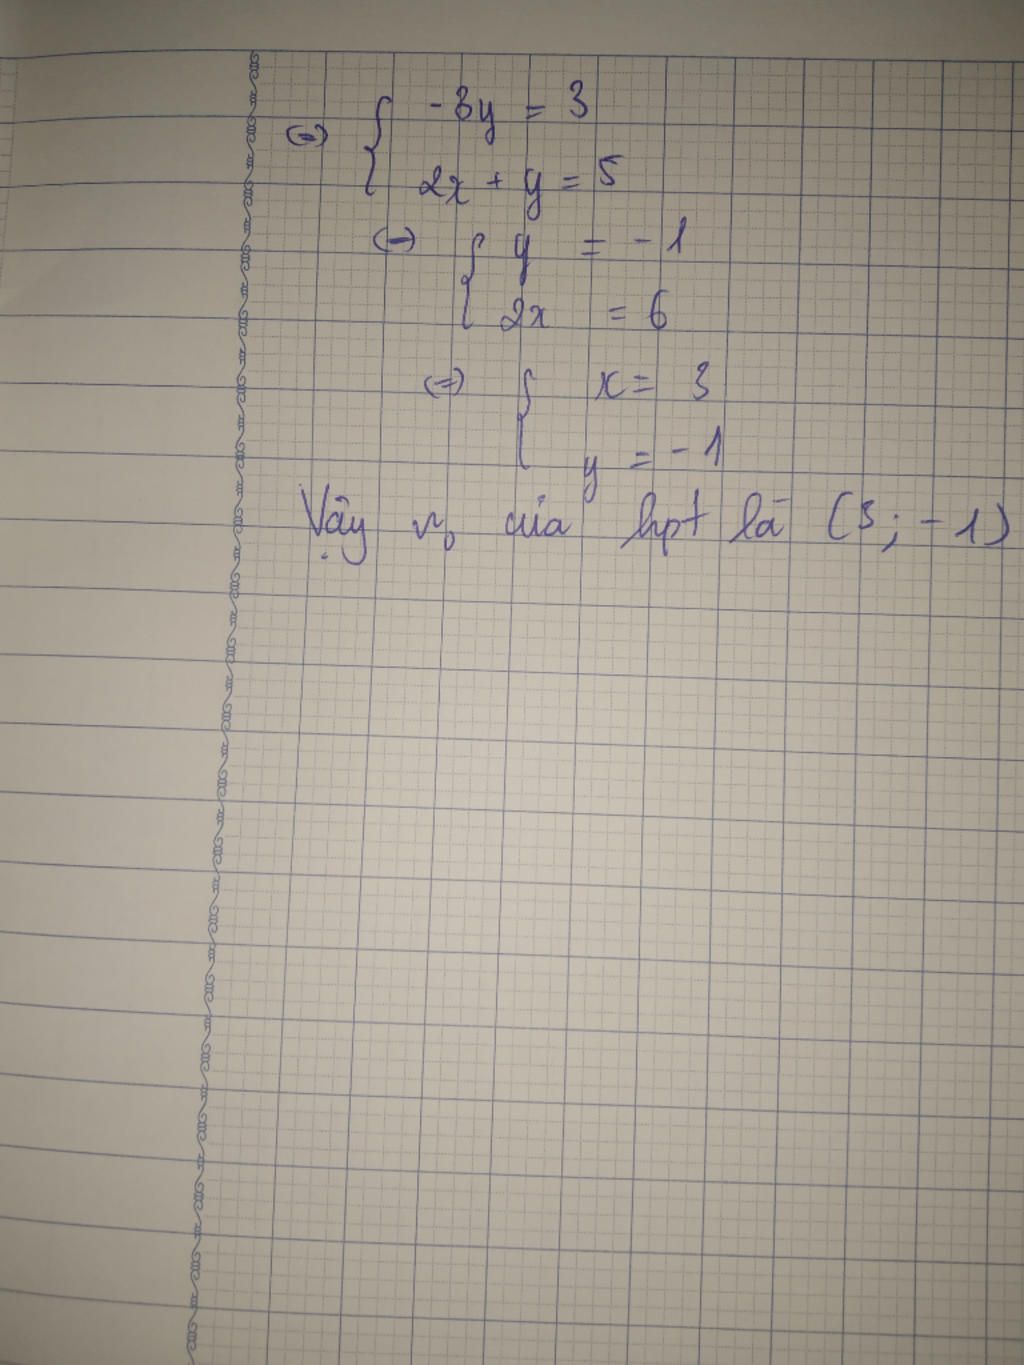 ⇔ { -3y = 3
2x + y = 5
⇔ { y = -1
2x = 6
⇔ { x = 3
y = -1
Vậy n₀ của hpt là (3; -1)